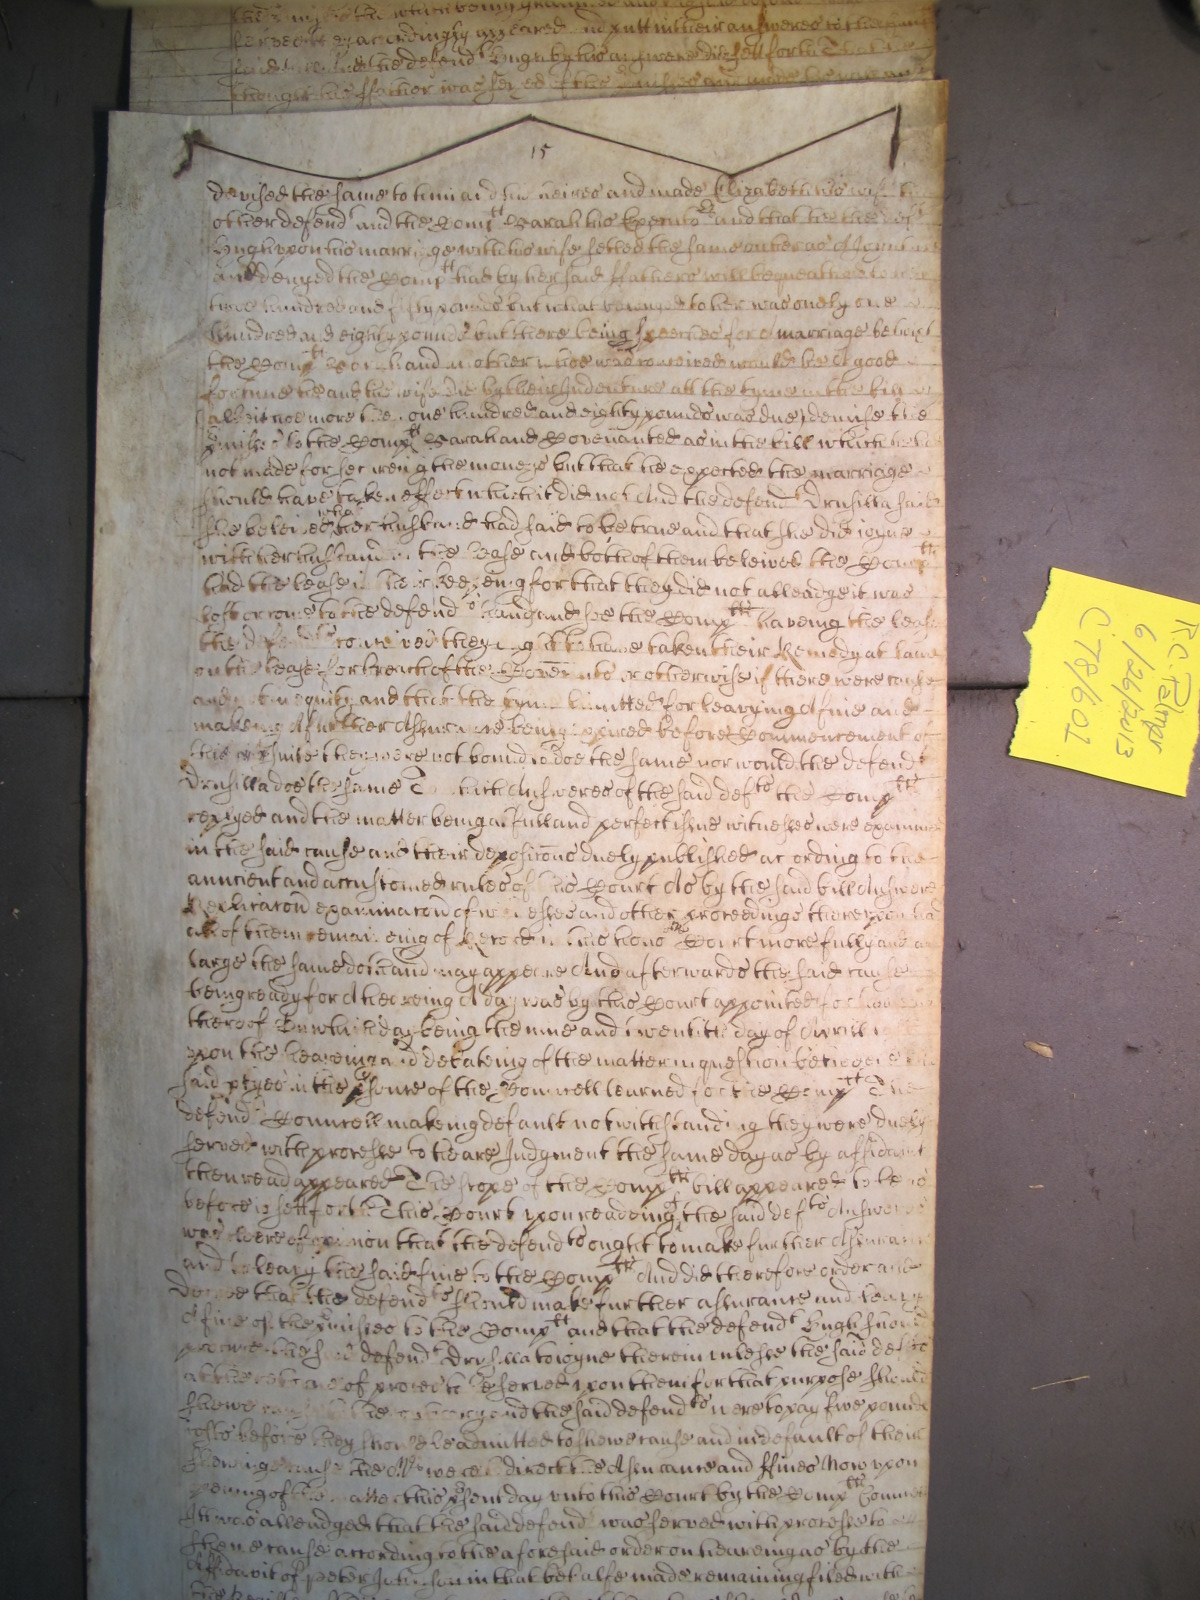 accordingly appeared and putt in their answeres to the
the defendt Hugh by his answere did sett forth That
thought his ffather was seized of the
15
devised the same to him and his heires and made Elizabeth his wife
other defendt and the Compt Sarah his Executors and that he the deft
Hugh upon his marriage with his wife setled the same on her as A Joynture
and denyed the Compt had by her said ffathers will bequeathed to her
two hundred and fifty pounds but what belonged to her was onely one
hundred and eighty pounds but there being speeches for a marriage betwixt
the Compt Sarah and another whoe was conceived would be A good
fortune he and his wife did by their Indenture att the tyme in the bill
albeit noe more then one hundred and eighty pounds was due demise the
premisses to the Compt Sarah and Covenanted as in the bill which
not made for secureing the moneys but that he expected the marriage
should have taken effect which it did not And the defendt Drusilla said
she beleived what her husband had said to be true and that she did joyne
with her husband in the Lease and both of them beleived the Compts
had the lease in their keeping for that they did not alleadge it was
lost or come to the defendts hands and soe the Compts haveing the lease
the defendts conceived they ought to have taken their Remedy at law
on the lease for breach of the Covenants or otherwise if there were cause
and not in equity and that the tyme limitted for leavying A fine and
makeing A further Assurance being expired before Commencement of
the suite they were not bound to doe the same nor would the defendt
Drusilla doe the same To which Answeres of the said defts the Compts
replyed and the matter being att full and perfect issue witnesses were examined
in the said cause and their deposicons duely published according to the
auncient and accustomed rules of this Court As by the said bill Answere
Replicacon examinacon of witnesses and other proceedings thereupon had
all of them remaineing of Record in this honoble Court more fully and att
large the same doth and may appeare And afterwards the said cause
being ready for A heareing A day was by this Court appointed for
thereof On which day being the nine and twentith day of Aprill
upon the heareing and debateing of the matter in question betweene the
said ptyes in the psence of the Councell learned for the Compts The
defendts Councell makeing default notwithstanding they were duely
served with processe to heare Judgment the same day as by affidavit
then read appeared The scope of the Compts bill appeared to be as
before is sett forth This Court upon reading the said defts Answeres
was cleere of opinion that the defendts ought to make further Assurance
and to leavy the said fine to the Compts And did therefore order and
Decree that the defendts should make further assurance and leavy
A fine of the premisses to the Compts and that the defendt Hugh should
procure the said defendt Drusilla to joyne therein unlesse the said defts
att the returne of processe to be served upon them for that purpose should
shewe cause to the contrary and the said defendts were to pay five pounds
costs before they should be admitted to shewe cause and in default of their
shewinge cause the Mr were to direct the Assurance and ffines Now upon
opening of the matter this psent day unto this Court by the Compts Councell
It was alleadged that the said defend was served with processe to
shewe cause according to the aforesaid order on heareing as by the
Affidavit of Peter in that behalfe made remaining filed with
R.C. Palmer
6/26/2013
C78/601